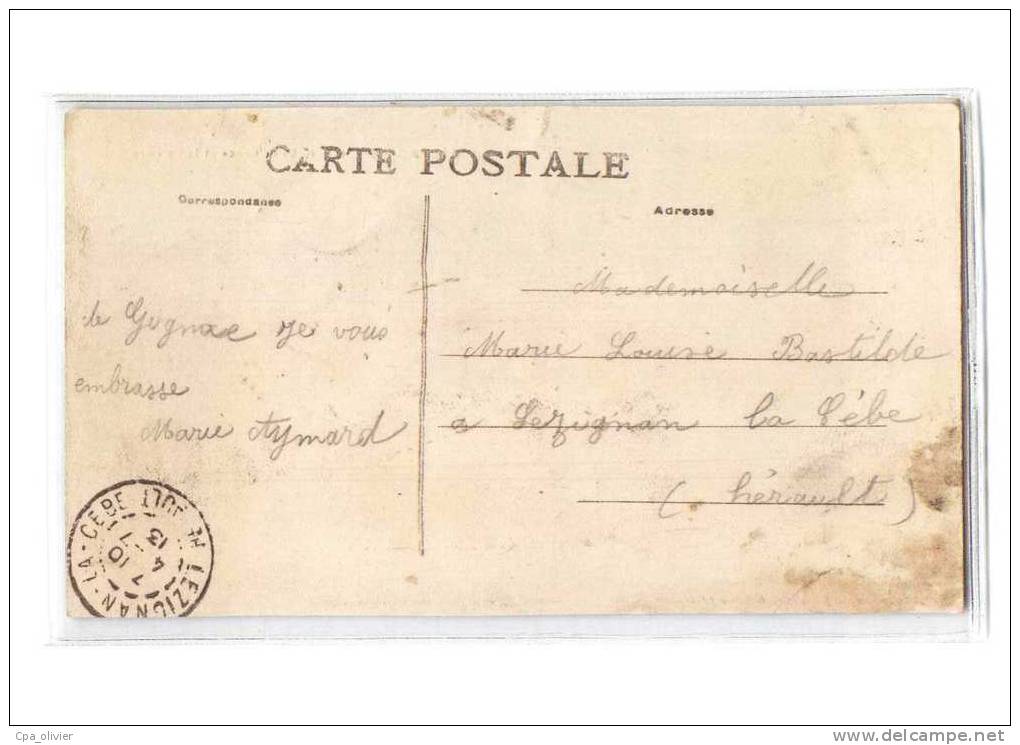 CARTE POSTALE
Correspondance
Adresse
de Gignac je vous
embrasse
Marie Aymard
Mademoiselle
Marie Louise Bastilde
a Lezignan la Cébe
(hérault)
LEZIGNAN-LA-CEBE
7 10
4 -1
13
Cpa_olivier
www.delcampe.net